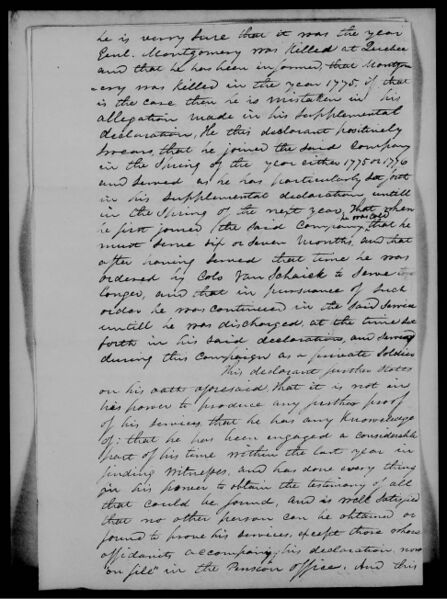 he is verry sure that it was the year
Genl. Montgomery was killed at Quebec
and that he has been informed, that Montgom
ery was killed in the year 1775, if that
is the case then he is mistaken in his
allegation made in his Supplemental
declaration, He this declarant positively
swears, that he joined the said Company
in the Spring of the year either 1775 or 1776
and served as he has particularly set fort
in his supplemental declaration untill
in the Spring of the next year, That when
he first joined the said Company, he was told that he
must serve six or seven months, and that
after having served that time he was
ordered by Colo Van Schaick to serve
longer, and that in pursuance of such
order he was continued in the said service
untill he was discharged, at the time set
forth in his said declaration, and served
during this Campaign as a private Soldier
This declarant further states
on his oath aforesaid, that it is not in
his power to produce any further proof
of his services, that he has any knowledge
of: that he has been engaged a considerable
part of his time within the last year in
finding witnesses, and has done every thing
in his power to obtain the testimony of all
that could be found, and is well satisfied
that no other person can be obtained or
found to prove his services, except those whose
affidavits accompany his declaration, now
"on file" in the Pension Office. And this